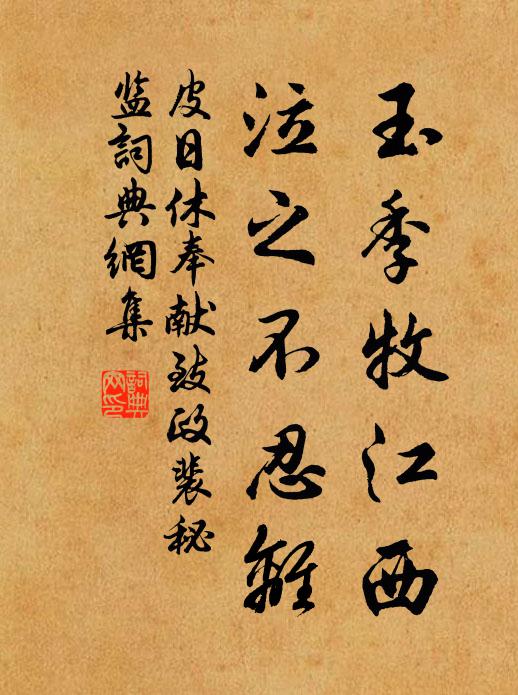 玉季牧江西
泣之不忍離
皮日休奉献致政裴秘
监詞典網集
詞典
网印